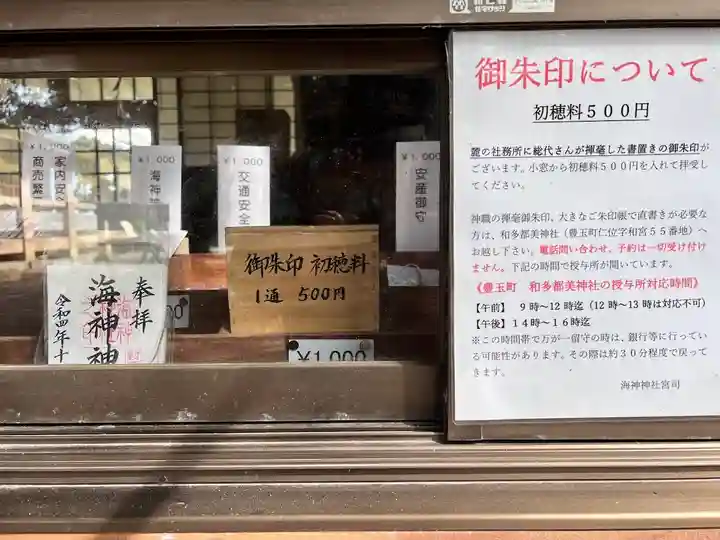 ¥1,000
家内安
商売繁
¥1,000
海神
¥1,000
交通安全
¥1,000
安産御守
御朱印 初穂料
1通 500円
奉拝
海神神
令和四年十
¥1,000
御朱印について
初穂料５００円
麓の社務所に総代さんが揮毫した書置きの御朱印が
ございます。小窓から初穂料５００円を入れて拝受し
てください。
神職の揮毫御朱印、大きなご朱印帳で直書きが必要な
方は、和多都美神社（豊玉町仁位字和宮５５番地）へ
お越し下さい。電話問い合わせ、予約は一切受け付け
ません。下記の時間で授与所が開いています。
《豊玉町　和多都美神社の授与所対応時間》
【午前】　９時～12時迄（12時～13時は対応不可）
【午後】１４時～１６時迄
※この時間帯で万が一留守の時は、銀行等に行ってい
る可能性があります。その際は約３０分程度で戻って
きます。
海神神社宮司